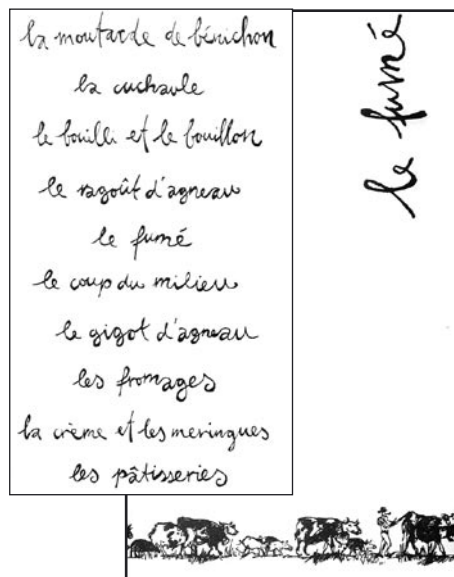 la moutarde de bénichon
la cuchaule
le bouilli et le bouillon
le ragoût d'agneau
le fumé
le coup du milieu
le gigot d'agneau
les fromages
la crème et les meringues
les pâtisseries
le fumé